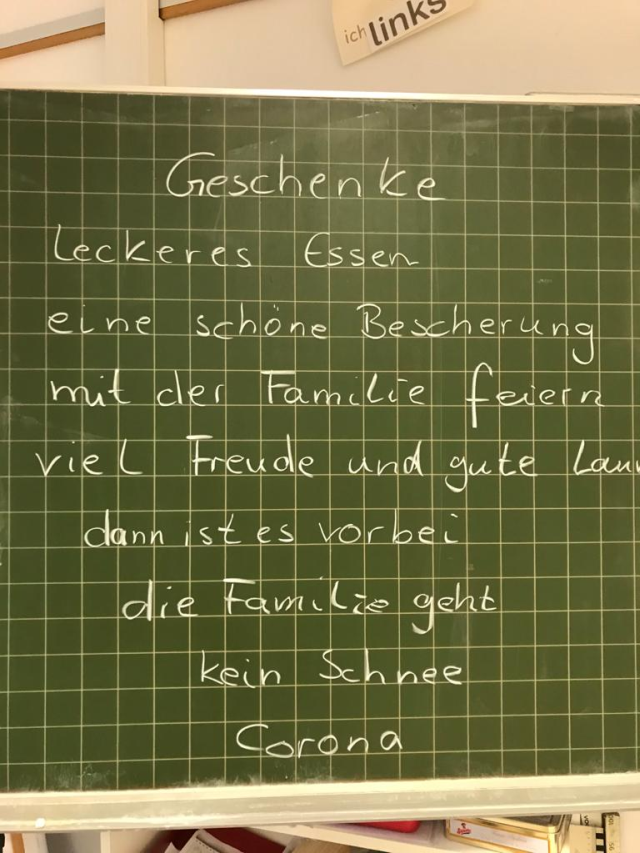 ich links
Geschenke
leckeres Essen
eine schöne Bescherung
mit der Familie feiern
viel Freude und gute
dann ist es vorbei
die Familie geht
kein Schnee
Corona